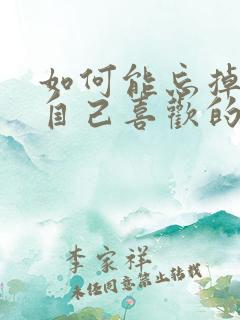 如何能忘掉
自己喜歡的
李家祥
未经同意禁止转载